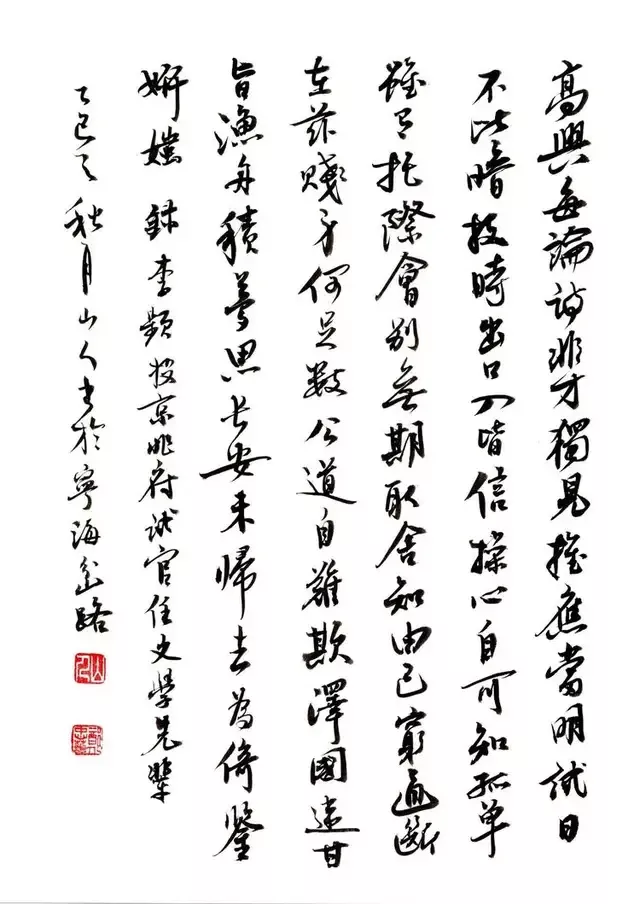 高興每論詩非才獨見推應當明試日
不比暗投時出口人皆信操心自可知孤單
雖有托際會別無期取舍知由己窮通斷
在茲賤身何足數公道自難欺澤國違甘
旨漁舟積夢思長安未歸去為倚鑒
妍媸 錄李頻投京兆府試官任文學先輩
乙巳之秋月山人書於寧海岔路